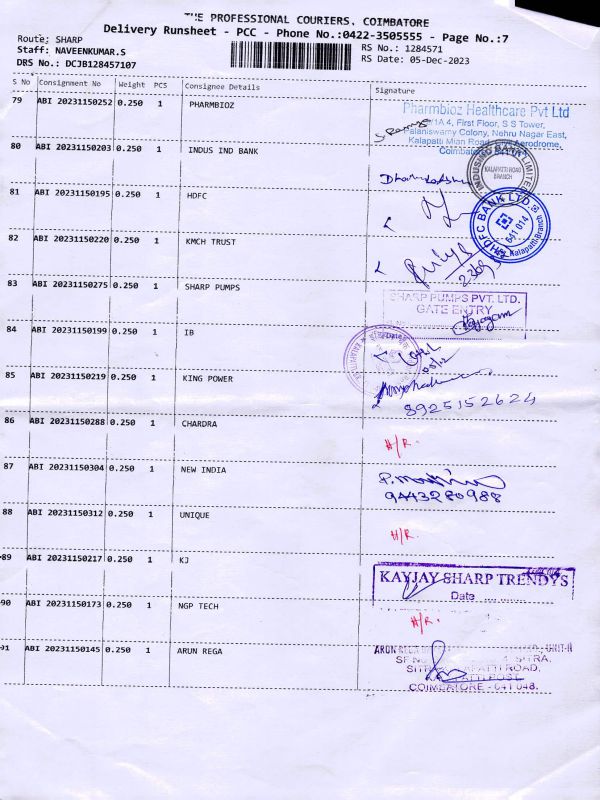 THE PROFESSIONAL COURIERS, COIMBATORE
Delivery Runsheet - PCC - Phone No.:0422-3505555 - Page No.:7
Route: SHARP
RS No.: 1284571
Staff: NAVEENKUMAR.S
RS Date: 05-Dec-2023
DRS No.: DCJB128457107
S No Consignment No Weight PCS Consignee Details Signature
79 ABI 20231150252 0.250 1 PHARMBIOZ
Pharmbioz Healthcare Pvt Ltd
First Floor, S S Tower,
Palaniswamy Colony, Nehru Nagar East,
Kalapatti Main Road, Civil Aerodrome,
Coimbatore - 641 014
80 ABI 20231150203 0.250 1 INDUS IND BANK
INDUSIND BANK LIMITED
KALAPATTI ROAD
BRANCH
81 ABI 20231150195 0.250 1 HDFC
HDFC BANK LTD.
641 014
Kalapatti Branch
82 ABI 20231150220 0.250 1 KMCH TRUST
83 ABI 20231150275 0.250 1 SHARP PUMPS
SHARP PUMPS PVT. LTD.
GATE ENTRY
84 ABI 20231150199 0.250 1 IB
85 ABI 20231150219 0.250 1 KING POWER
8925152624
86 ABI 20231150288 0.250 1 CHARDRA
H/R.
87 ABI 20231150304 0.250 1 NEW INDIA
9443280988
88 ABI 20231150312 0.250 1 UNIQUE
H/R.
89 ABI 20231150217 0.250 1 KJ
KAYJAY SHARP TRENDYS
Date
90 ABI 20231150173 0.250 1 NGP TECH
H/R.
91 ABI 20231150145 0.250 1 ARUN REGA
SITRA,
ROAD,
POST,
COIMBATORE - 641 048.